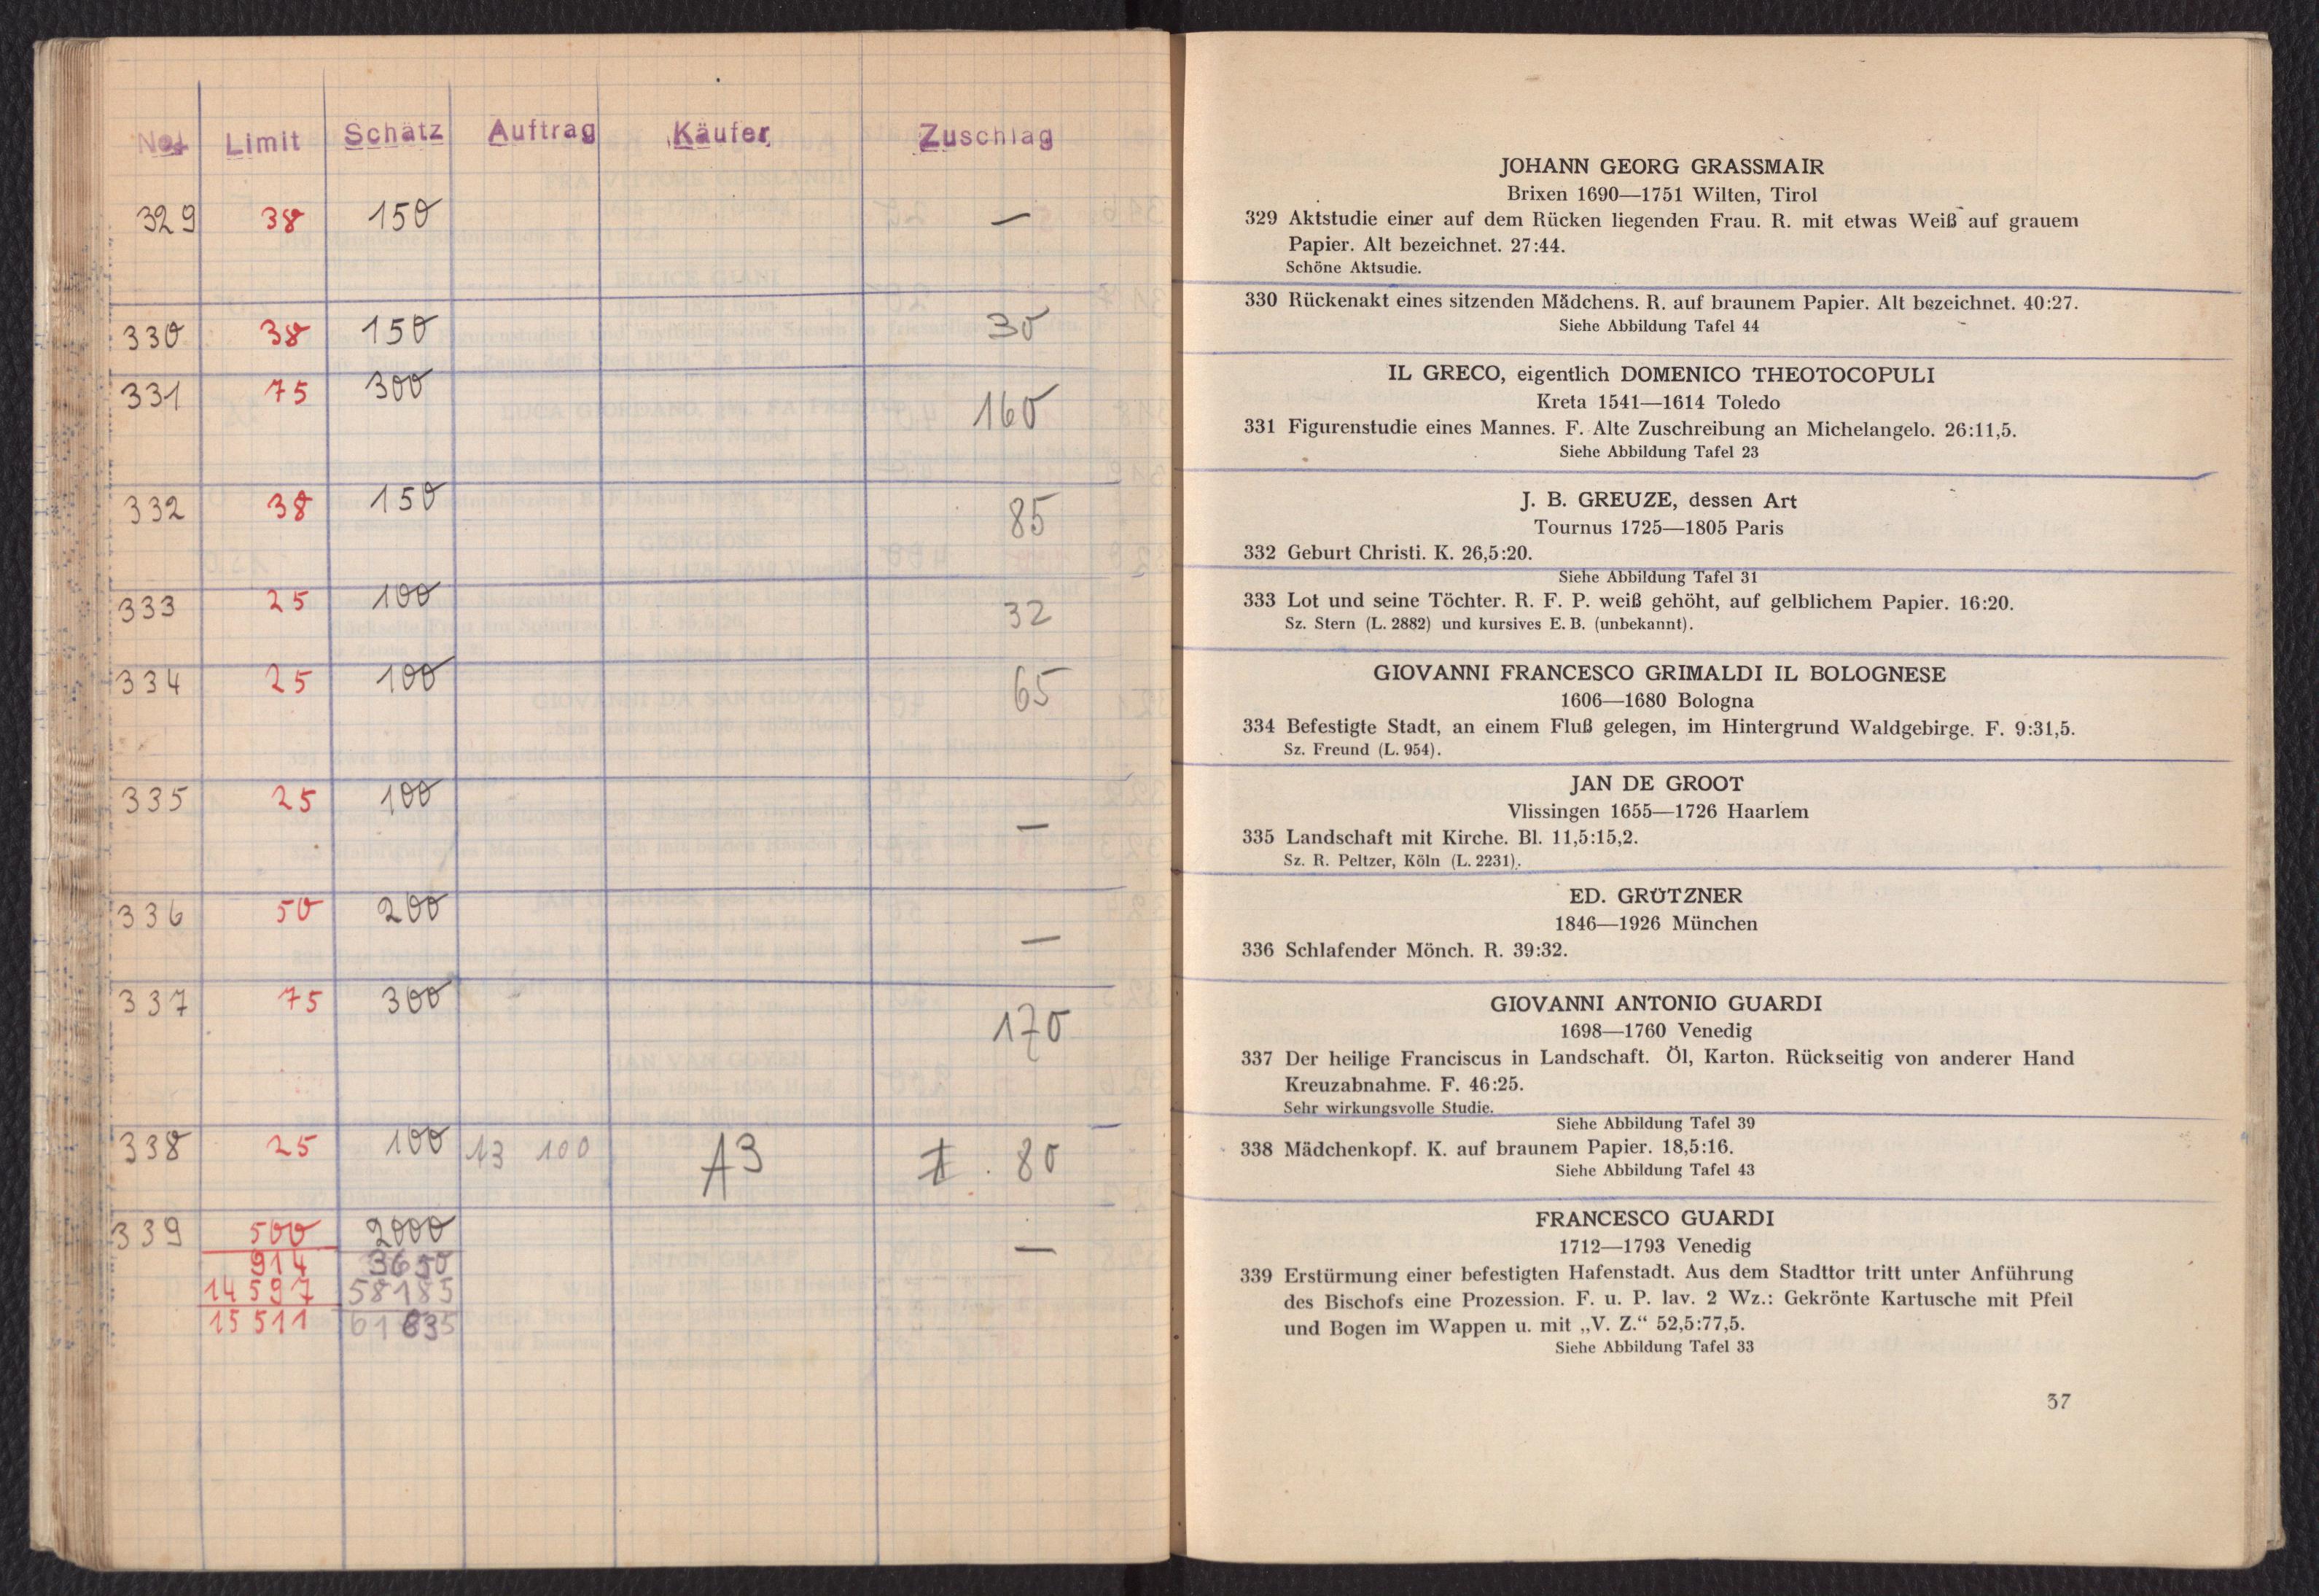 No Limit Schätz Auftrag Käufer Zuschlag
329 38 150 —
330 38 150 30
331 75 300 160
332 38 150 85
333 25 100 32
334 25 100 65
335 25 100 —
336 50 200 —
337 75 300 170
338 25 100 A3 100 A3 80
339 500 2000 —
914 3650
14597 58185
15511 61835
JOHANN GEORG GRASSMAIR
Brixen 1690—1751 Wilten, Tirol
329 Aktstudie einer auf dem Rücken liegenden Frau. R. mit etwas Weiß auf grauem
Papier. Alt bezeichnet. 27:44.
Schöne Aktsudie.
330 Rückenakt eines sitzenden Mädchens. R. auf braunem Papier. Alt bezeichnet. 40:27.
Siehe Abbildung Tafel 44
IL GRECO, eigentlich DOMENICO THEOTOCOPULI
Kreta 1541—1614 Toledo
331 Figurenstudie eines Mannes. F. Alte Zuschreibung an Michelangelo. 26:11,5.
Siehe Abbildung Tafel 23
J. B. GREUZE, dessen Art
Tournus 1725—1805 Paris
332 Geburt Christi. K. 26,5:20.
Siehe Abbildung Tafel 31
333 Lot und seine Töchter. R. F. P. weiß gehöht, auf gelblichem Papier. 16:20.
Sz. Stern (L. 2882) und kursives E. B. (unbekannt).
GIOVANNI FRANCESCO GRIMALDI IL BOLOGNESE
1606—1680 Bologna
334 Befestigte Stadt, an einem Fluß gelegen, im Hintergrund Waldgebirge. F. 9:31,5.
Sz. Freund (L. 954).
JAN DE GROOT
Vlissingen 1655—1726 Haarlem
335 Landschaft mit Kirche. Bl. 11,5:15,2.
Sz. R. Peltzer, Köln (L. 2231).
ED. GRÜTZNER
1846—1926 München
336 Schlafender Mönch. R. 39:32.
GIOVANNI ANTONIO GUARDI
1698—1760 Venedig
337 Der heilige Franciscus in Landschaft. Öl, Karton. Rückseitig von anderer Hand
Kreuzabnahme. F. 46:25.
Sehr wirkungsvolle Studie.
Siehe Abbildung Tafel 39
338 Mädchenkopf. K. auf braunem Papier. 18,5:16.
Siehe Abbildung Tafel 43
FRANCESCO GUARDI
1712—1793 Venedig
339 Erstürmung einer befestigten Hafenstadt. Aus dem Stadttor tritt unter Anführung
des Bischofs eine Prozession. F. u. P. lav. 2 Wz.: Gekrönte Kartusche mit Pfeil
und Bogen im Wappen u. mit „V. Z.“ 52,5:77,5.
Siehe Abbildung Tafel 33
37